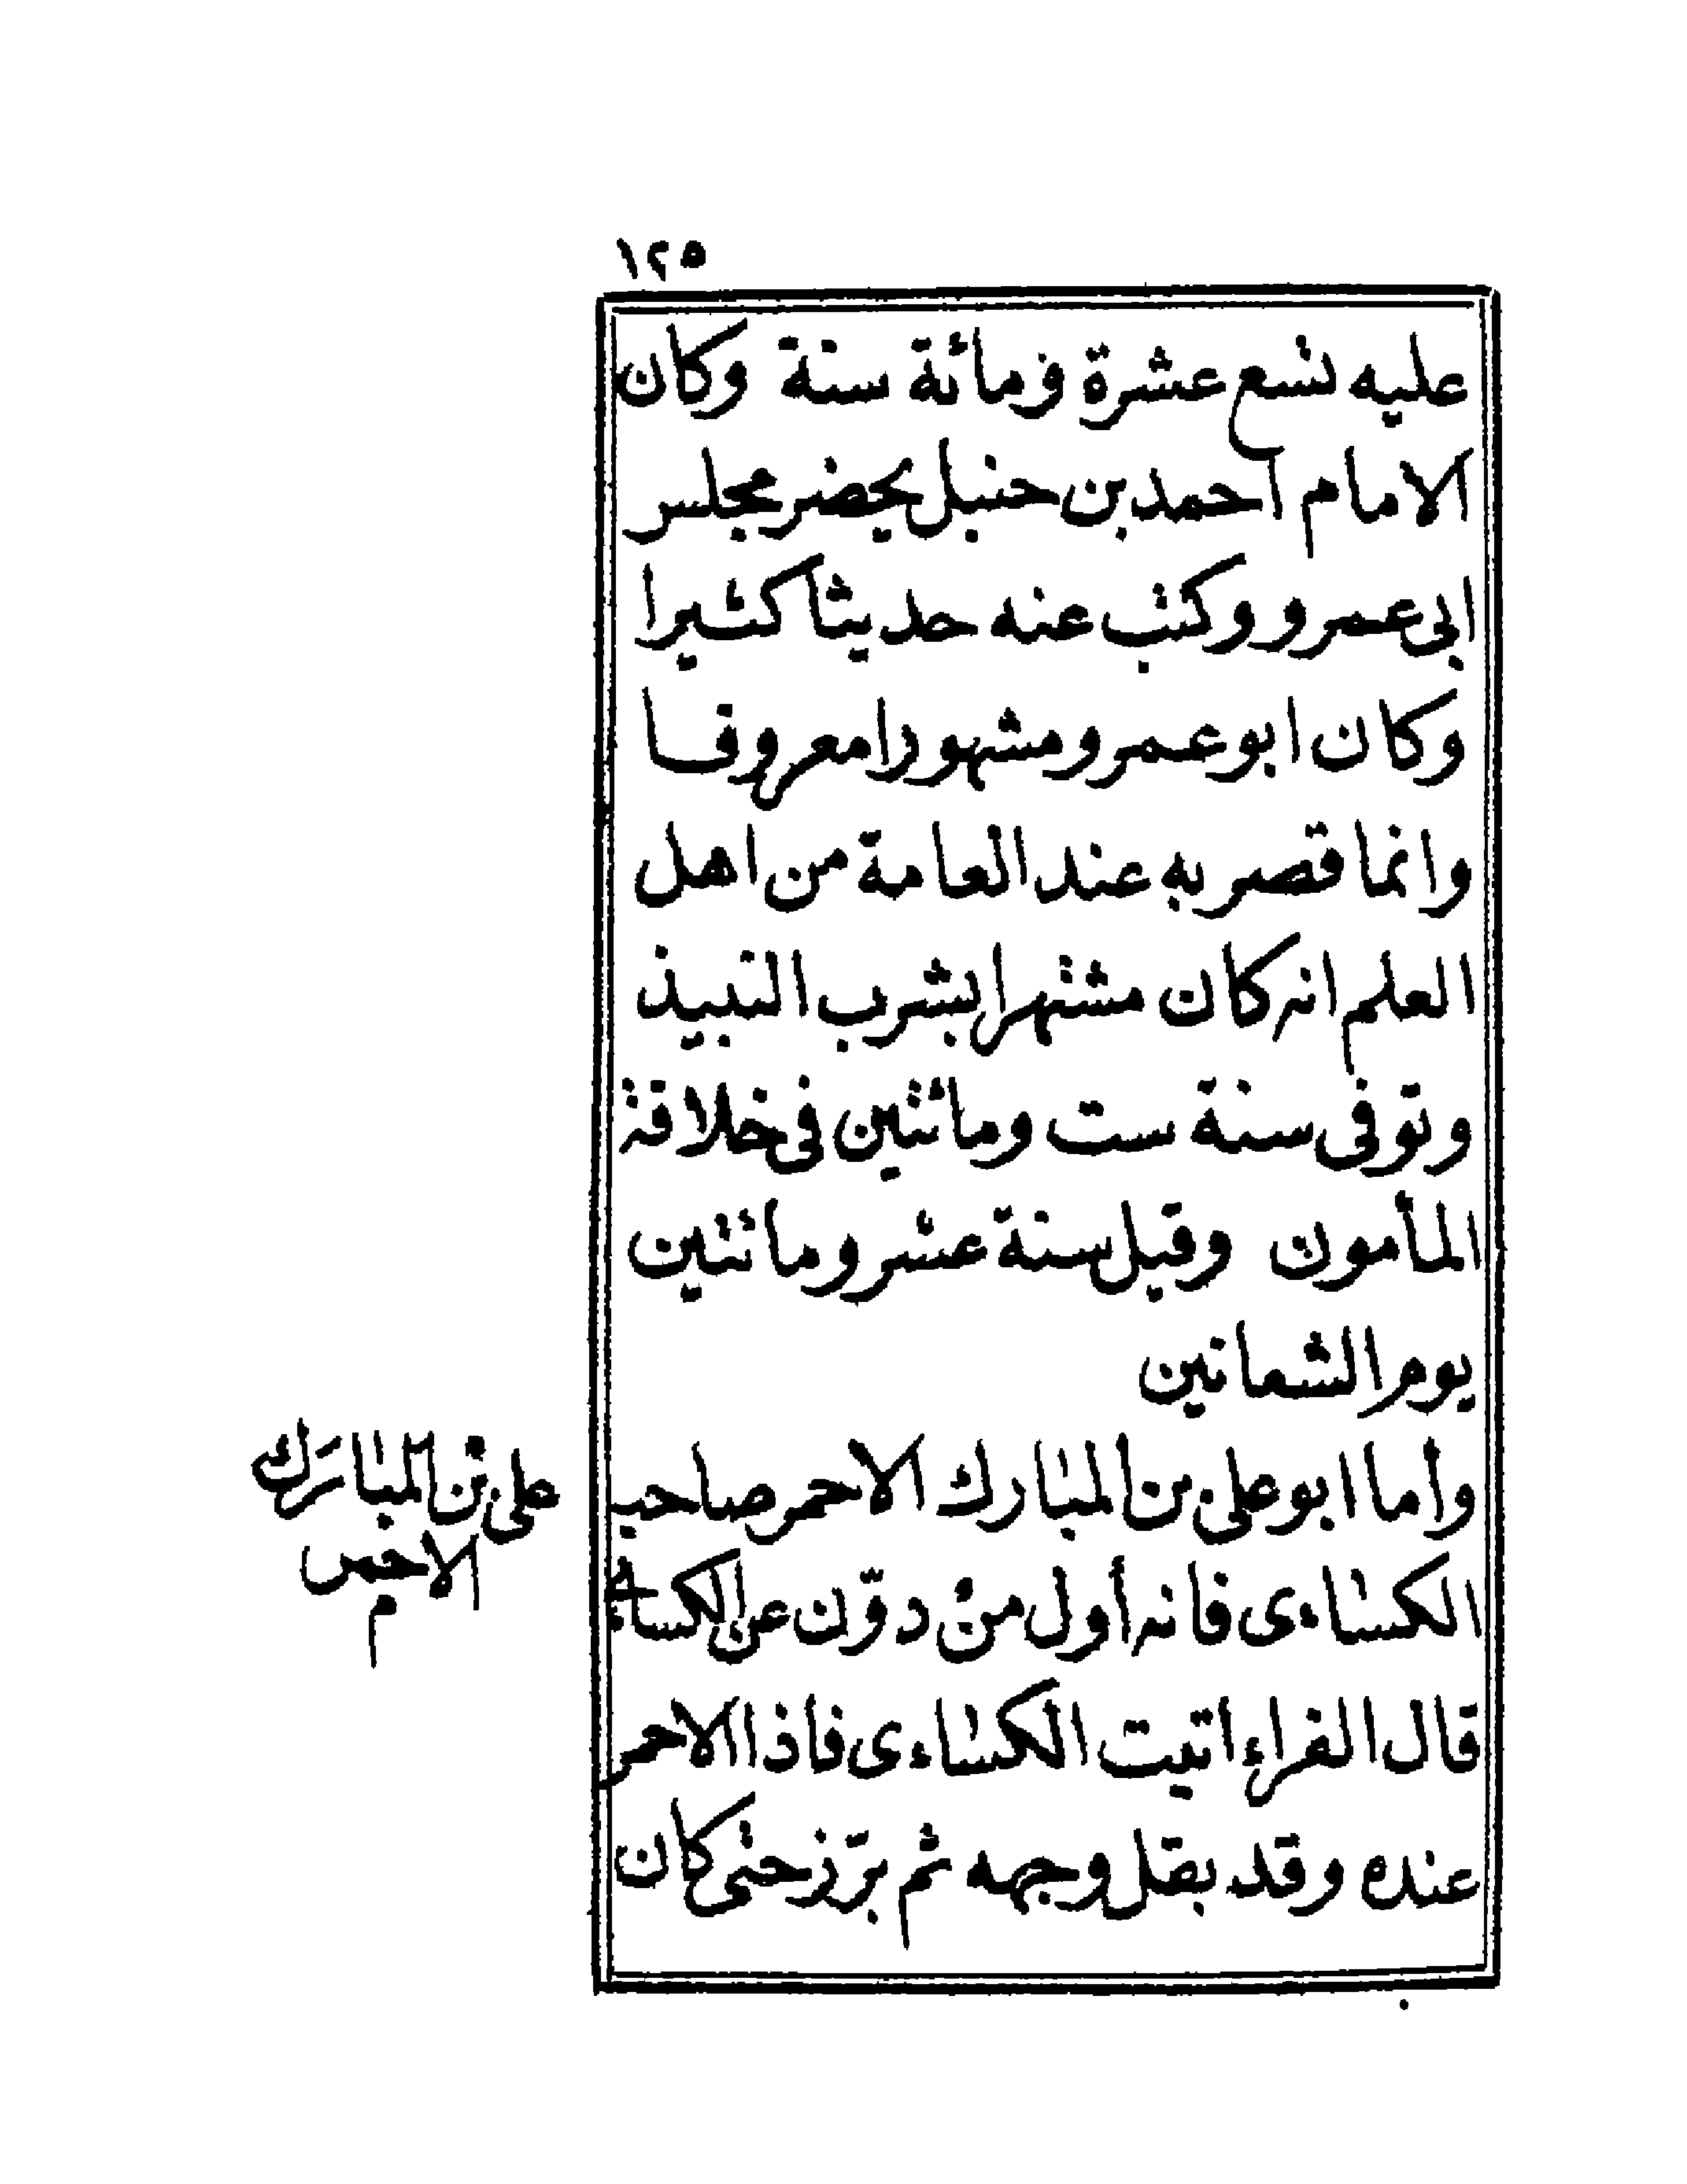 ١٢٥
عليه تسع عشرة ومائة سنة وكان
الامام احمد بن حنبل يحضر مجلس
ابى عمرو وكتب عنه حديثا كثيرا
وكان ابو عمرو مشهورا معروفا
وانما قصر به عند العامة من اهل
العلم انه كان مشتهرا بشرب النبيذ
وتوفى سنة ست ومائتين فى خلافة
المأمون وقيل سنة عشر ومائتين
يوم الشعانين
وأما ابو على بن المبارك الاحمر صاحب
الكساءى فانه أول من دوّن عن الكسائى
قال الفراء اتيت الكساءى فاذا الاحمر
عنده وقد بقل وجهه ثم برّز حتى كان
على بن المبارك
الاحمر
م